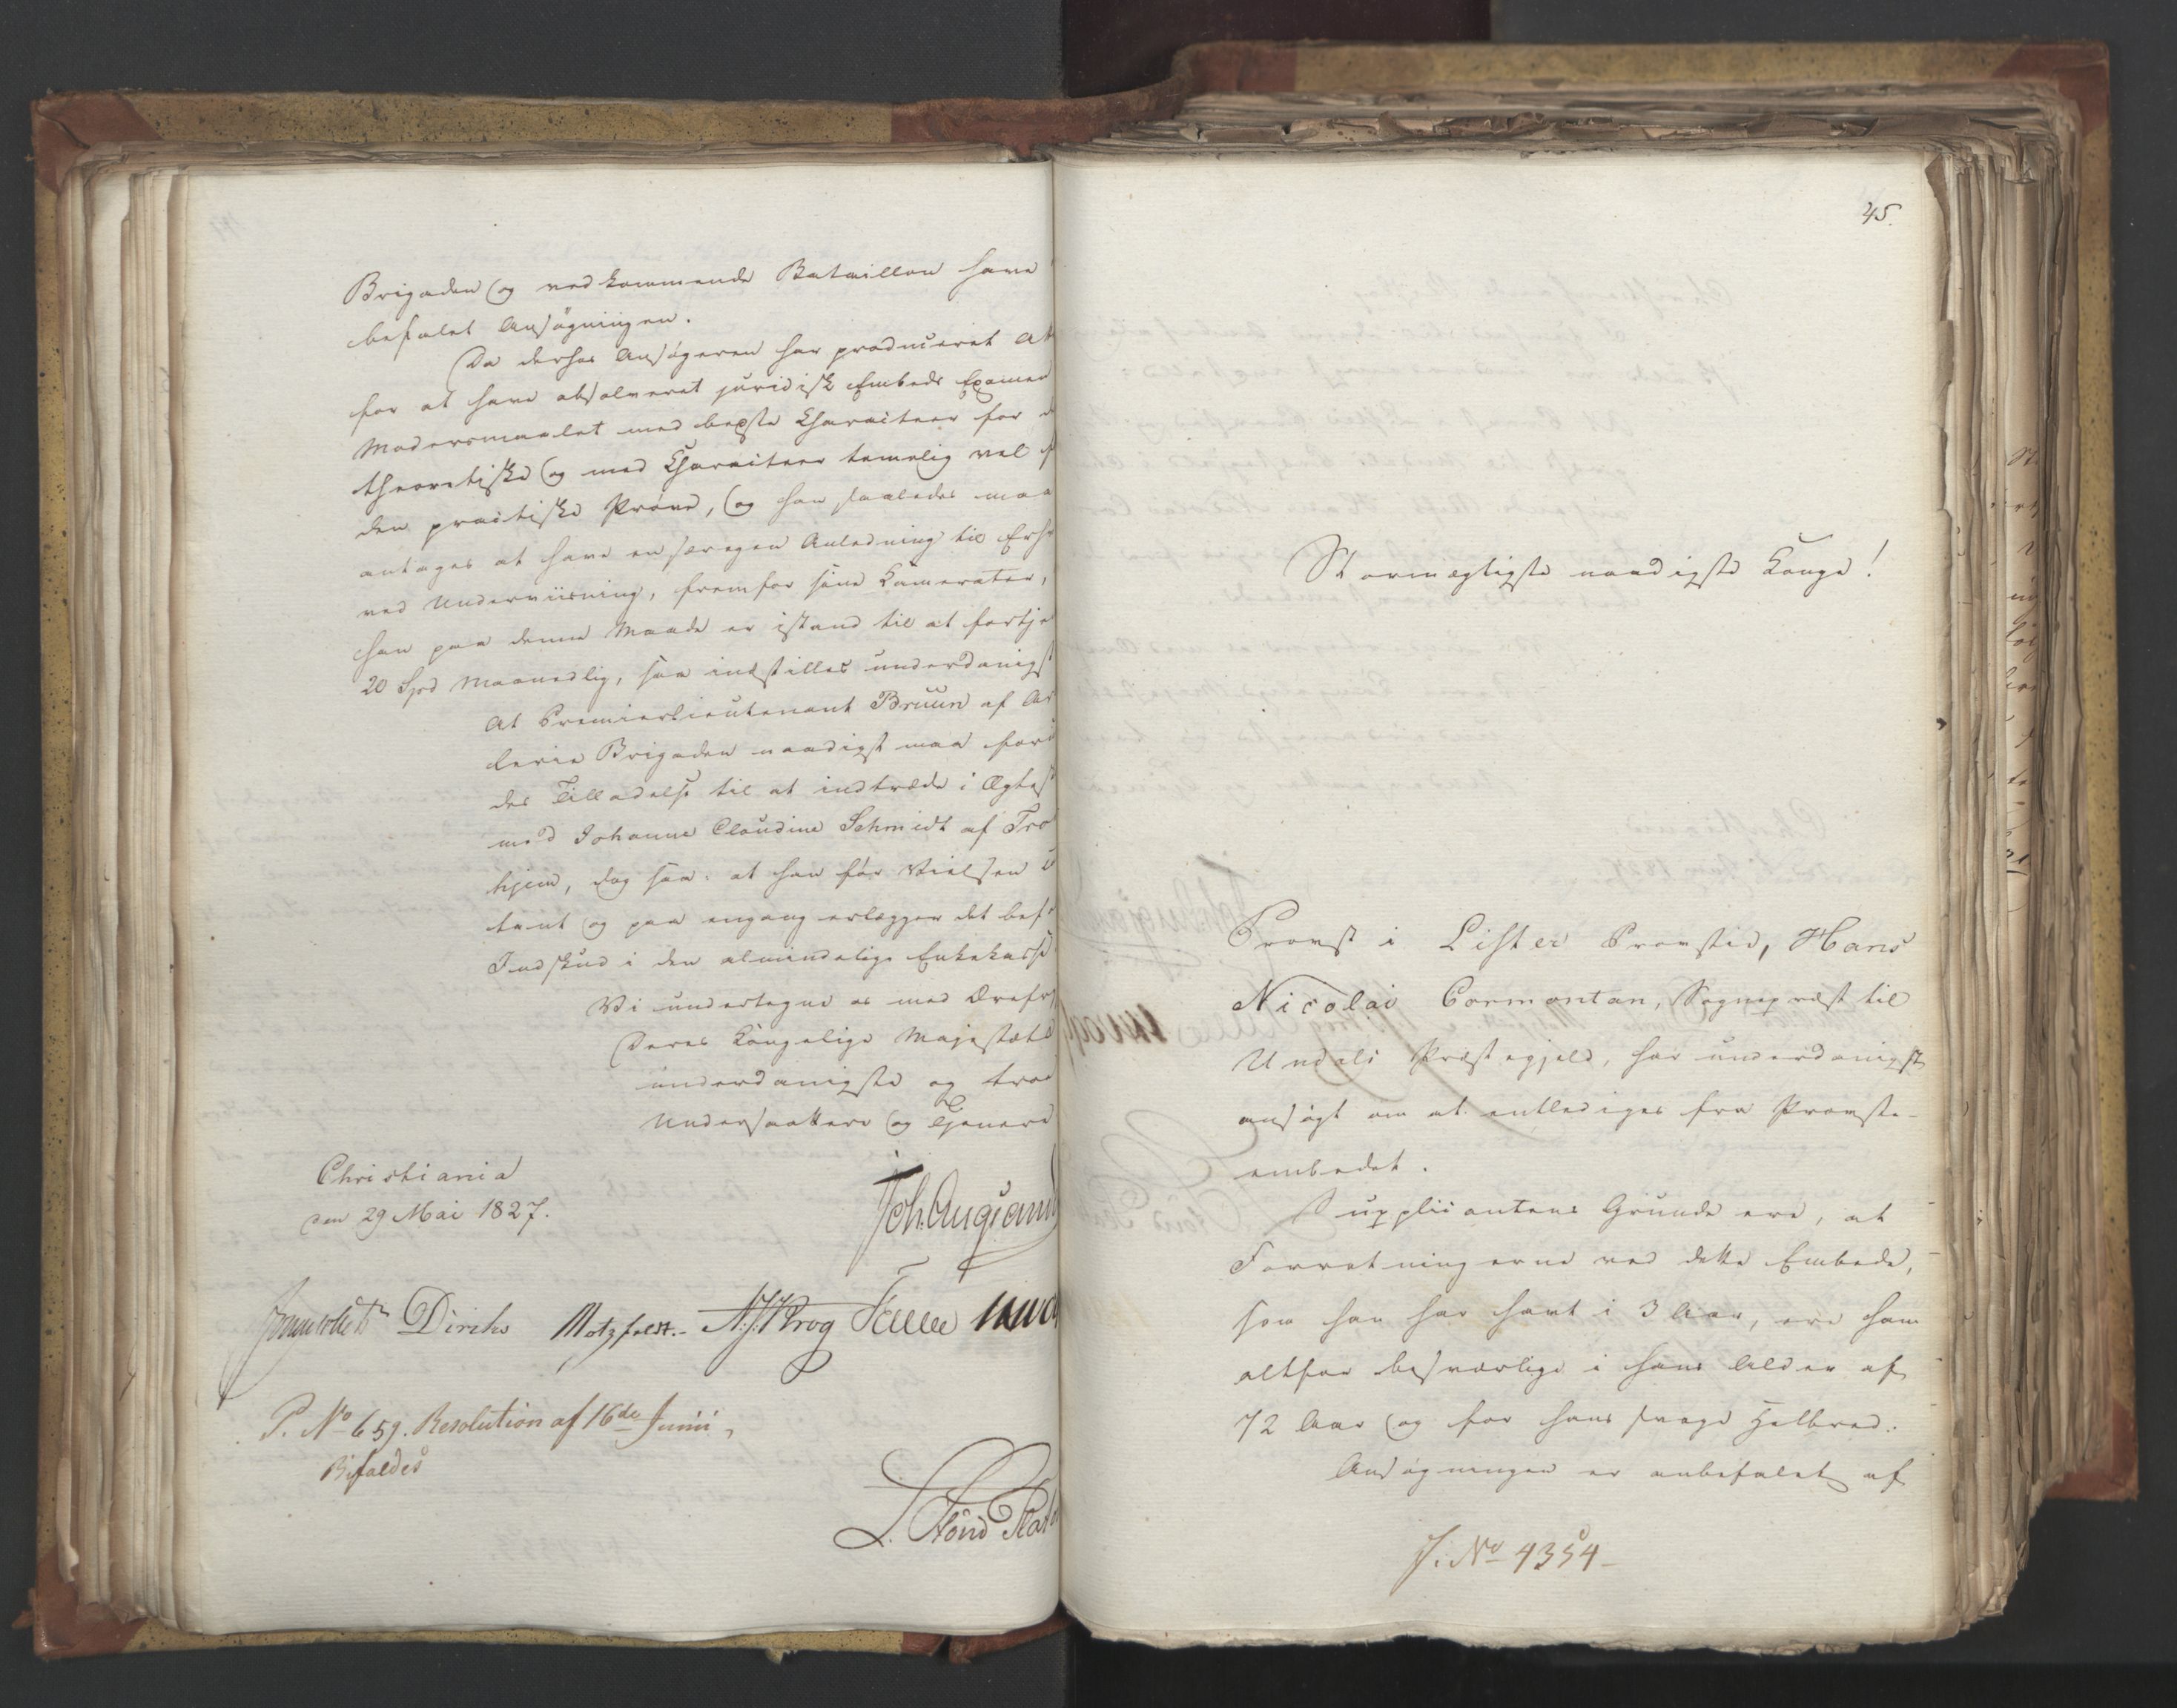 Brigaden og vedkommende Bataillon have
befalet Ansøgningen.
Da derhos Ansøgeren har produceret At
for at have absolveret juridisk Embeds Examen
Modersmaalet med bedste Charakteer for d
theoretiske og med Charakteer temmelig vel f
den practiske Prøve, og han saaledes maa
antages at have en særegen Anledning til Erh
ved Underviisning, fremfor sine Kamerater,
han paa denne Maade er istand til at fortje
20 Spd maanedlig, saa indstilles underdanigst
At Premierlieutenant Bruun af Ar
lerie Brigaden naadigst maa for
des Tilladelse til at indtræde i Ægtes
med Johanne Claudine Schmidt af Tro
hjem, dog saa: at han før Vielsen
tant og paa engang erlægger det bef
Indskud i den almindelige Enkekasse
Vi undertegne os med Ærefr
Deres Kongelige Majestæts
underdanigste og troe
Undersaattere og Tjenere
Christiania
den 29 Mai 1827.
Joh. Aug. Sand
Diriks Motzfeldt. N. J. Krog
P. No 659. Resolution af 16de Junii,
Bifaldes
45.
Stormægtigste naadigste Konge!
Provst i Lister Provstie, Hans
Nicolai Cormontan, Sognepræst til
Undals Præstegjeld, har underdanigst
ansøgt om at entlediges fra Provste-
embedet.
Supplicantens Grunde ere, at
Forretningerne ved dette Embede,
som han har havt i 3 Aar, ere ham
altfor besværlige i hans Alder af
72 Aar og for hans svage Helbred.
Ansøgningen er anbefalet af
J. No 4354